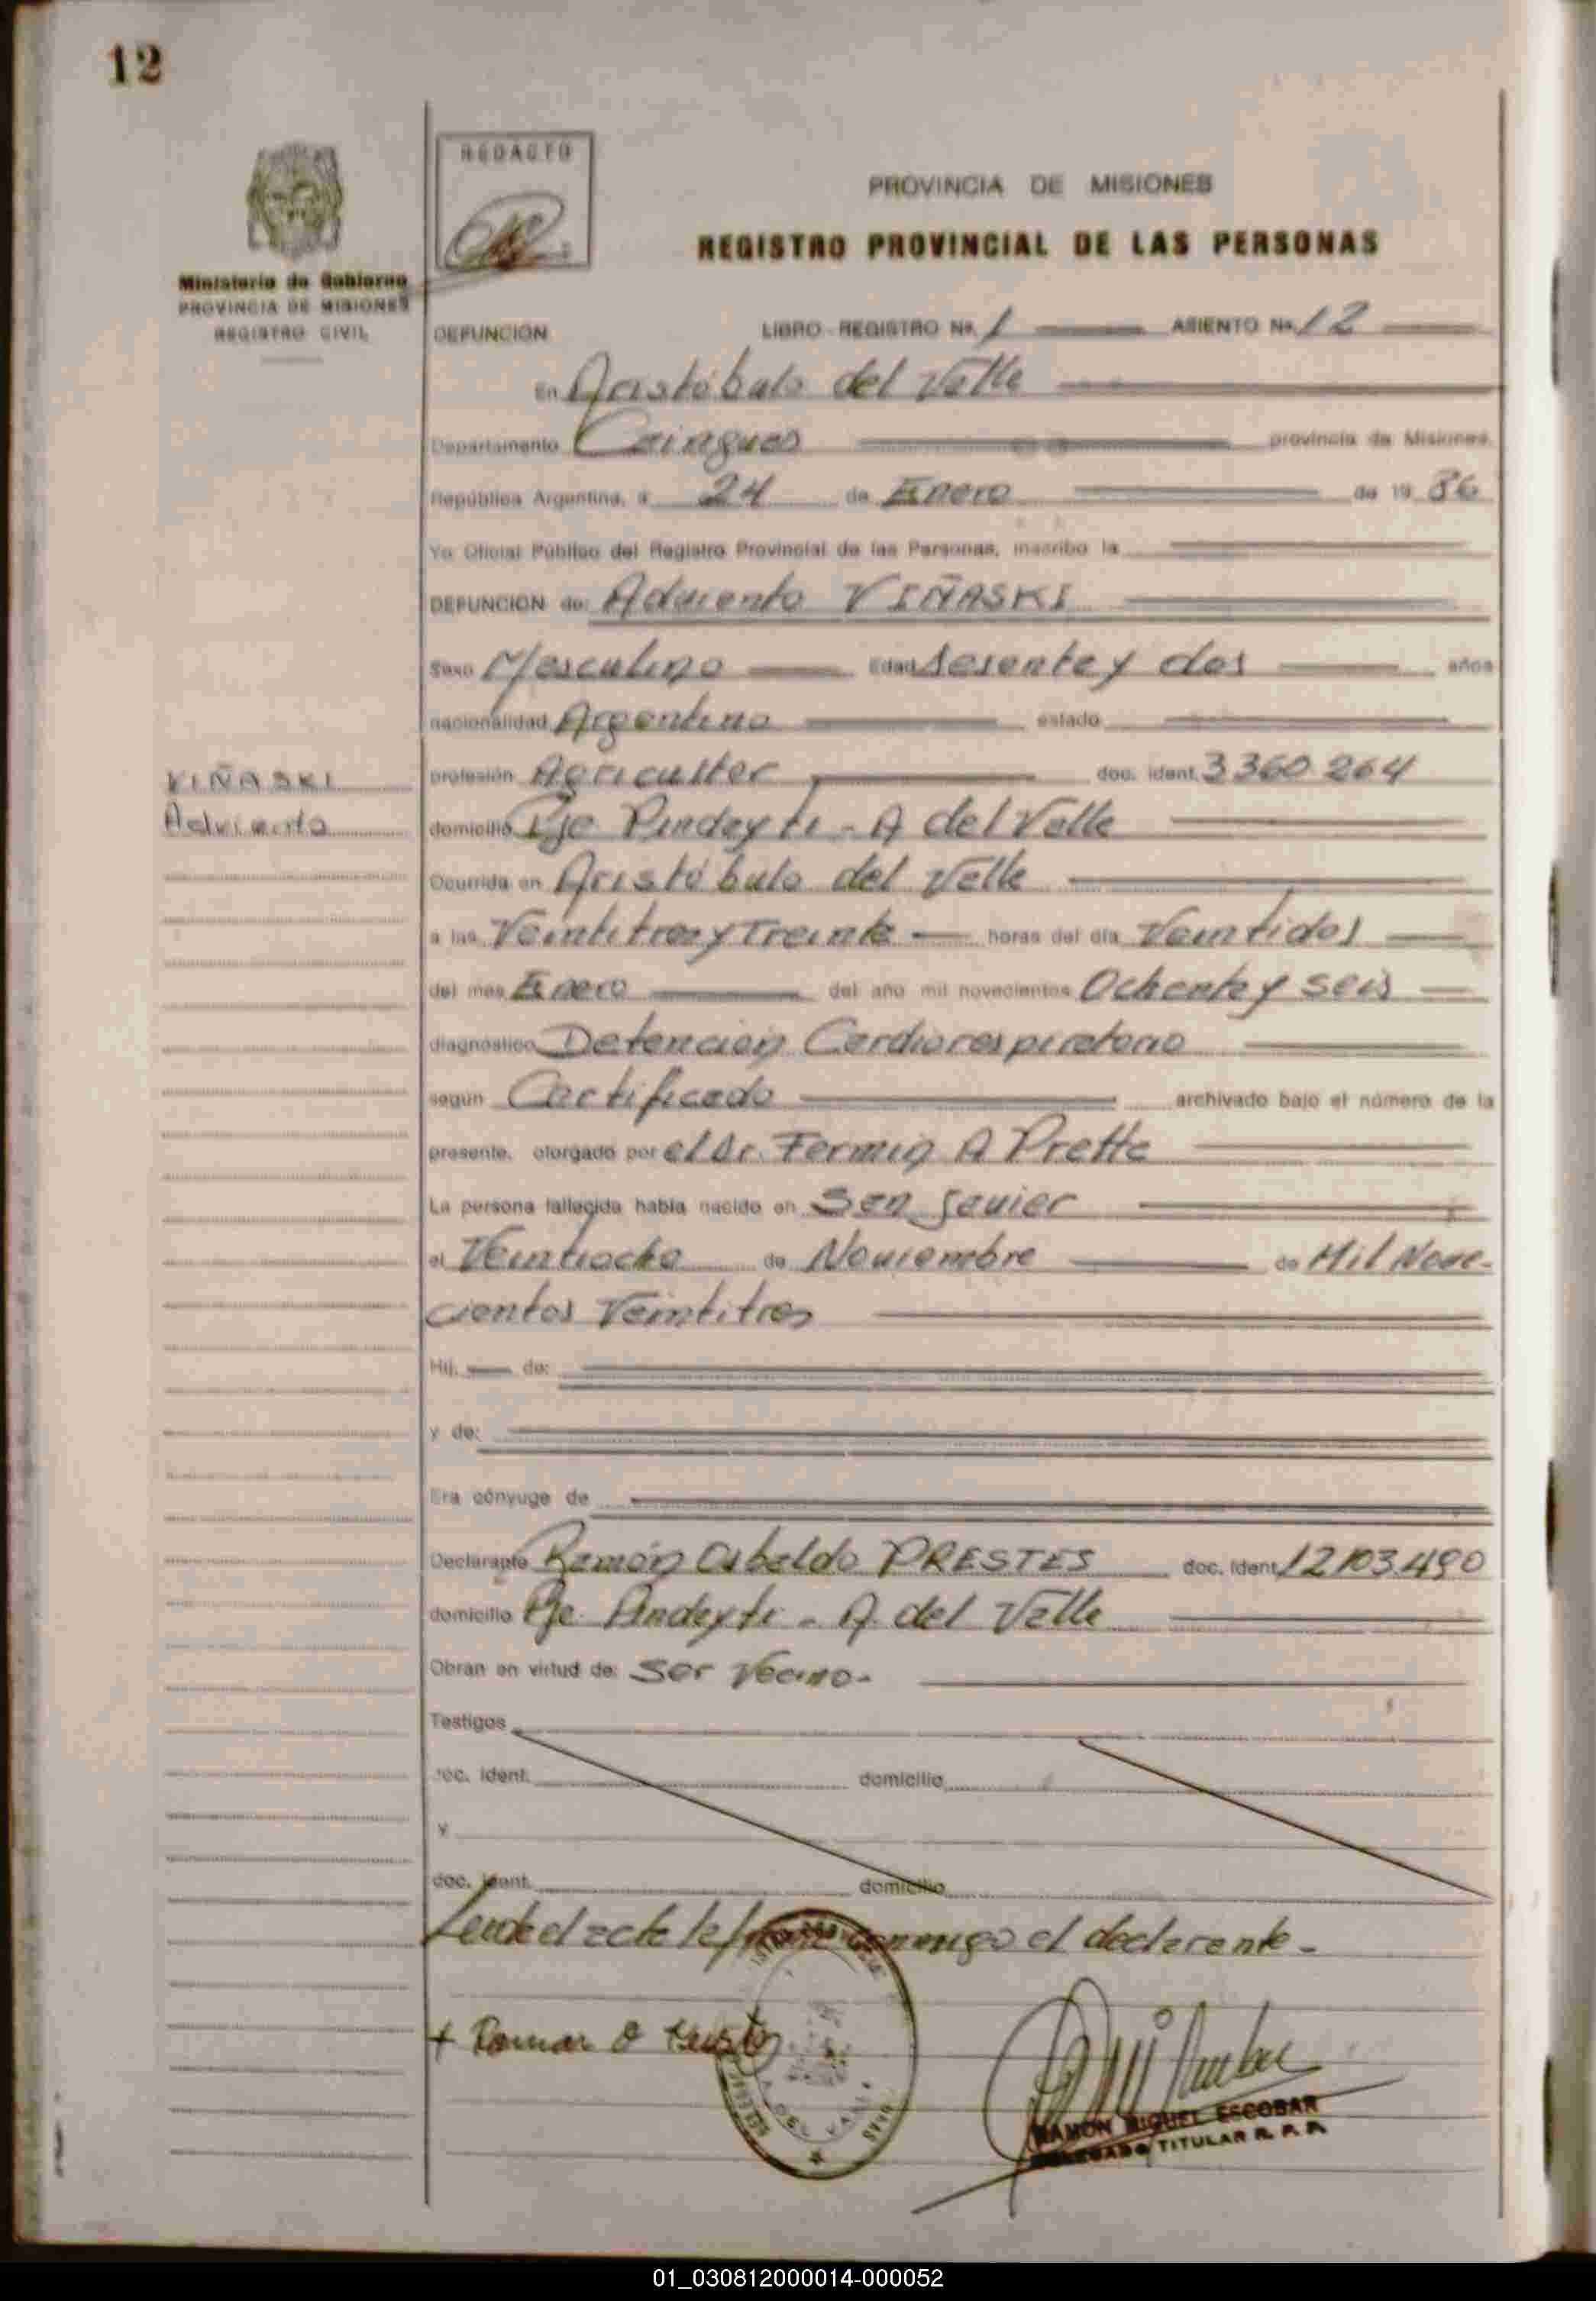 12
REDACTO
PROVINCIA DE MISIONES
REGISTRO PROVINCIAL DE LAS PERSONAS
Ministerio de Gobierno
PROVINCIA DE MISIONES
REGISTRO CIVIL
DEFUNCION LIBRO - REGISTRO No. 1 ASIENTO No. 12
En Aristóbulo del Valle
Departamento Cainguas provincia de Misiones,
República Argentina, a 24 de Enero de 19 86
Yo Oficial Público del Registro Provincial de las Personas, inscribo la
DEFUNCION de: Adviento VIÑASKI
Sexo Masculino Edad sesenta y dos años
nacionalidad Argentina estado
VIÑASKI
Adviento
profesión Agricultor doc. ident. 3360.264
domicilio Pje Pindayti - A del Valle
Ocurrida en Aristóbulo del Valle
a las Veintitres y Treinta horas del día Veintidos
del mes Enero del año mil novecientos Ochenta y seis
diagnóstico Detención Cardiorespiratorio
según Certificado archivado bajo el número de la
presente, otorgado por el Dr. Fermin A Prette
La persona fallecida había nacido en San Javier
el Veintiocho de Noviembre de Mil Nove-
cientos Veintitres
Hij. de:
y de:
Era cónyuge de
Declarante Ramón Osbaldo PRESTES doc. ident. 12.103.490
domicilio Pje. Pindayti - A. del Valle
Obran en virtud de: Ser Vecino.
Testigos
doc. ident. domicilio
y
doc. ident. domicilio
Leida el acta la firma conmigo el declarante.
RAMON MIGUEL ESCOBAR
DELEGADO TITULAR R. P. P.
01_030812000014-000052